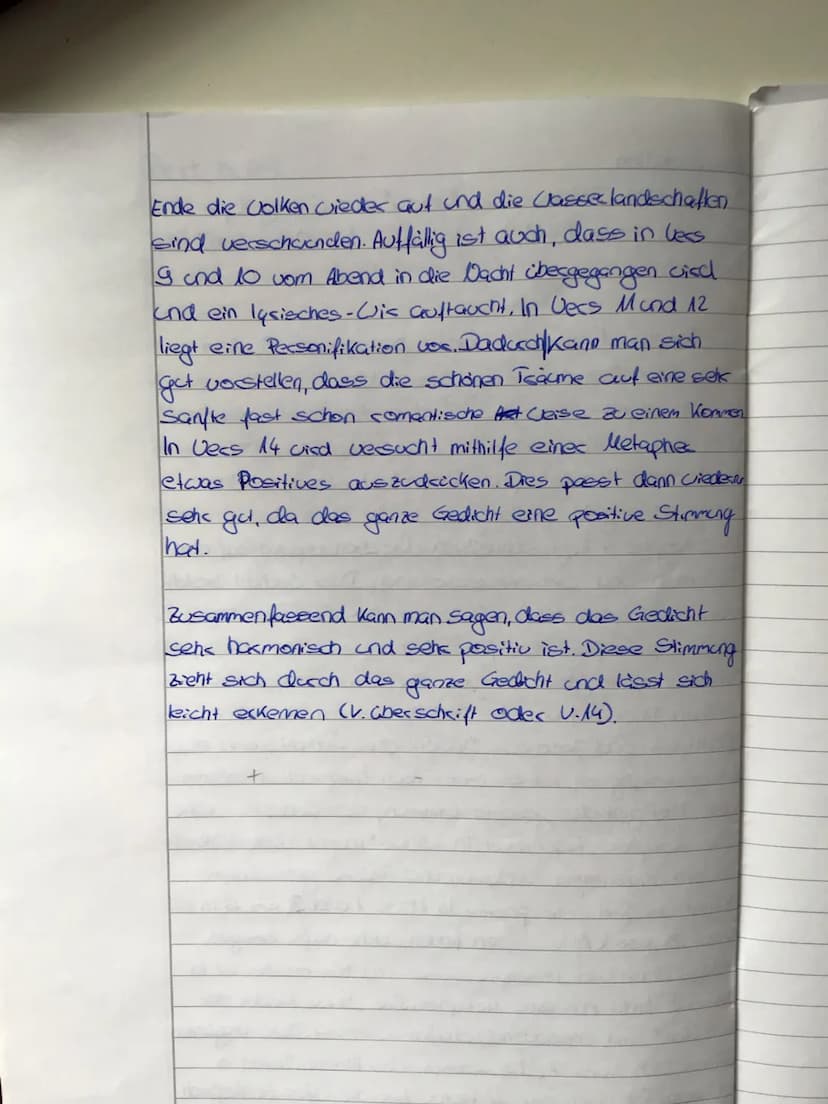 Ende die Wolken wieder auf und die Wasserlandschaften
sind verschwunden. Auffällig ist auch, dass in Vers
9 und 10 vom Abend in die Nacht übergegangen wird
und ein lyrisches-Wir auftaucht. In Vers 11 und 12
liegt eine Personifikation vor. Dadurch/kann man sich
gut vorstellen, dass die schönen Träume auf eine sehr
sanfte fast schon romantische Art Weise zu einem kommen
In Vers 14 wird versucht mithilfe einer Metapher
etwas Positives auszudrücken. Dies passt dann wiederum
sehr gut, da das ganze Gedicht eine positive Stimmung
hat.
Zusammenfassend kann man sagen, dass das Gedicht
sehr harmonisch und sehr positiv ist. Diese Stimmung
zieht sich durch das ganze Gedicht und lässt sich
leicht erkennen (V. Überschrift oder V.14).
+ -